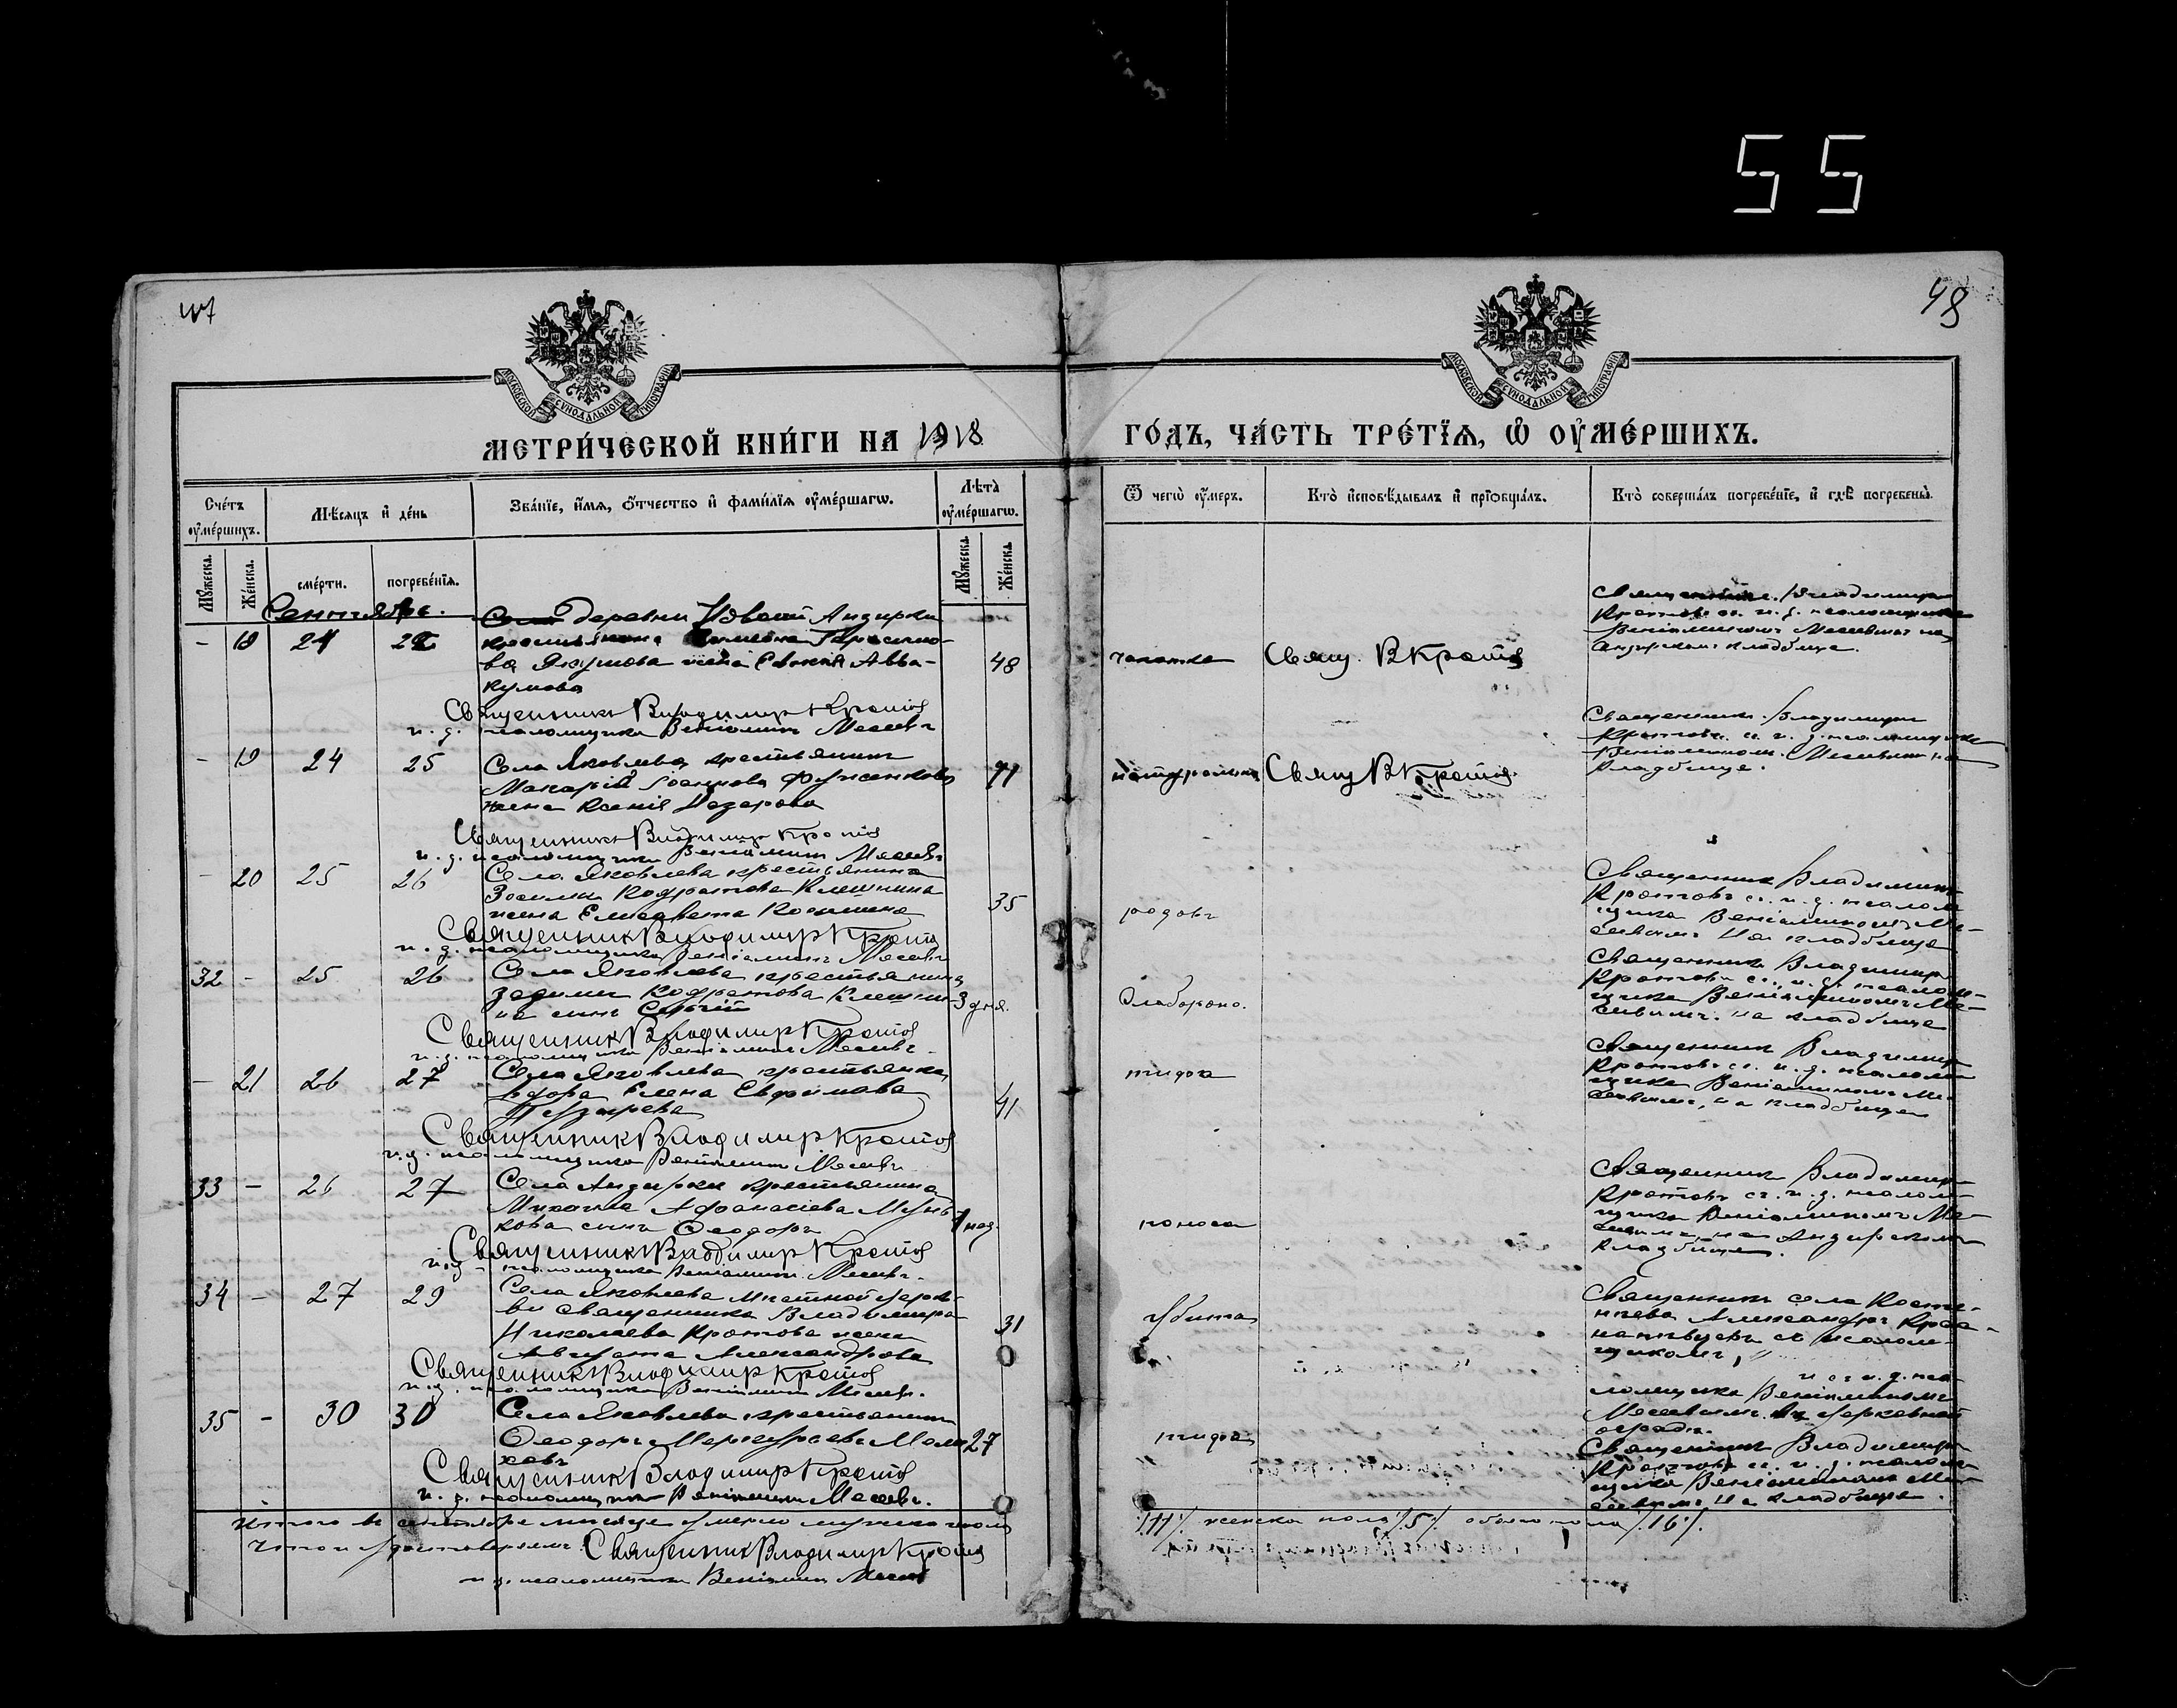 55
47
48
МОСКОВСКОЙ СѴНОДАЛЬНОЙ ТИПОГРАФІИ
МОСКОВСКОЙ СѴНОДАЛЬНОЙ ТИПОГРАФІИ
МЕТРИ́ЧЕСКОЙ КНИ́ГИ НА 1918
ГО́ДЪ, ЧА́СТЬ ТРЕ́ТЇѦ, Ѡ҆ ОУ҆МЕ́РШИХЪ.
Сче́тъ оу҆ме́ршихъ.
Мѣ́сѧцъ и҆ де́нь
Зва́нїе, и҆́мѧ, ѻ҆́тчество и҆ фами́лїѧ оу҆ме́ршагѡ.
Лѣ́та̀ оу҆ме́ршагѡ.
Ѿ чегѡ̀ оу҆́меръ.
Кто̀ и҆сповѣ́дывалъ и҆ прїѻбща́лъ.
Кто̀ соверша́лъ погребе́нїе, и҆ гдѣ̀ погребены̀.
Мꙋ́жеска.
Же́нска.
сме́рти.
погребе́нїѧ.
Мꙋ́жеска
Же́нска
Сентябрь.
деревни Новой Андирки
- 19 24
крестьянина
ва Якунова жена Евдокія Авва-
кумова
48
чахотка
Свящ. ВКротов
Священникъ Владимиръ
Кротовъ съ и. д. псаломщика
Веніаминомъ Масевымъ на
Андирскомъ кладбище.
Священникъ Владимир Кротов
и. д. псаломщика Веніаминъ Масевъ
- 19 24 25
Села Яковлева крестьянина
Макарія
жена Ксенія Назарова
71
натурально
Свящ ВКротов
Священникъ Владимиръ
Кротовъ съ и. д. псаломщика
Веніаминомъ Масевымъ на
кладбище.
Священникъ Владимир Кротов
и. д. псаломщика Веніаминъ Масевъ
- 20 25 26
Села Яковлева крестьянина
Зосимы Кодратова Клешнина
жена Елисавета Козьмина
35
родовъ
Священникъ Владимиръ
Кротовъ съ и. д. псалом-
щика Веніаминомъ Ма-
севымъ на кладбище
Священник Владимир Кротов
и. д. псаломщика Веніаминъ Масевъ
32 - 25 26
Села Яковлева крестьянина
Зосимы Кодратова Клешни-
на сынъ Сергій
3 дня.
Слаборожд.
Священникъ Владимиръ
Кротовъ съ и. д. псалом-
щика Веніаминомъ Ма-
севымъ на кладбище
Священник Владимир Кротов
и. д. псаломщика Веніаминъ Масевъ
- 21 26 27
Села Яковлева крестьянка
вдова Елена Евфимова
41
тифа
Священникъ Владимиръ
Кротовъ съ и. д. псалом-
щика Веніаминомъ Ма-
севымъ, на кладбище
Священник Владимир Кротов
и. д. псаломщика Веніаминъ Масевъ
33 - 26 27
Села Андирки крестьянина
Михаила Афанасіева Мунь-
кова сынъ Ѳеодоръ
1 нед.
поноса
Священникъ Владимиръ
Кротовъ съ и. д. псалом-
щика Веніаминомъ Ма-
севымъ на Андирскомъ
кладбище.
Священникъ Владимир Кротов
и. д. псаломщика Веніаминъ Масевъ.
34 - 27 29
Села Яковлева мѣстной церк-
ви священника Владимира
Николаева Кротова жена
Августа Александрова
31
убита
Священникъ села
Александръ
съ псалом-
щикомъ,
и съ и. д. пса-
ломщика Веніаминомъ
Масевымъ въ церковной
оградѣ.
Священникъ Владимир Кротов
и. д. псаломщика Веніаминъ Масевъ.
35 - 30 30
Села Яковлева крестьянинъ
Ѳеодоръ Меркурьевъ
27
тифа
Священникъ Владимиръ
Кротовъ съ и. д. псалом-
щика Веніаминомъ Ма-
севымъ на кладбище.
Священник Владимир Кротов
и. д. псаломщика Веніаминъ Масевъ.
Итого въ сентябрѣ мѣсяцѣ умерло мужска пола
11/. женска пола /5/. обоего пола /16/.
Что и удостовѣряемъ: Священник Владимир Кротов
и д. псаломщика Веніаминъ Масевъ